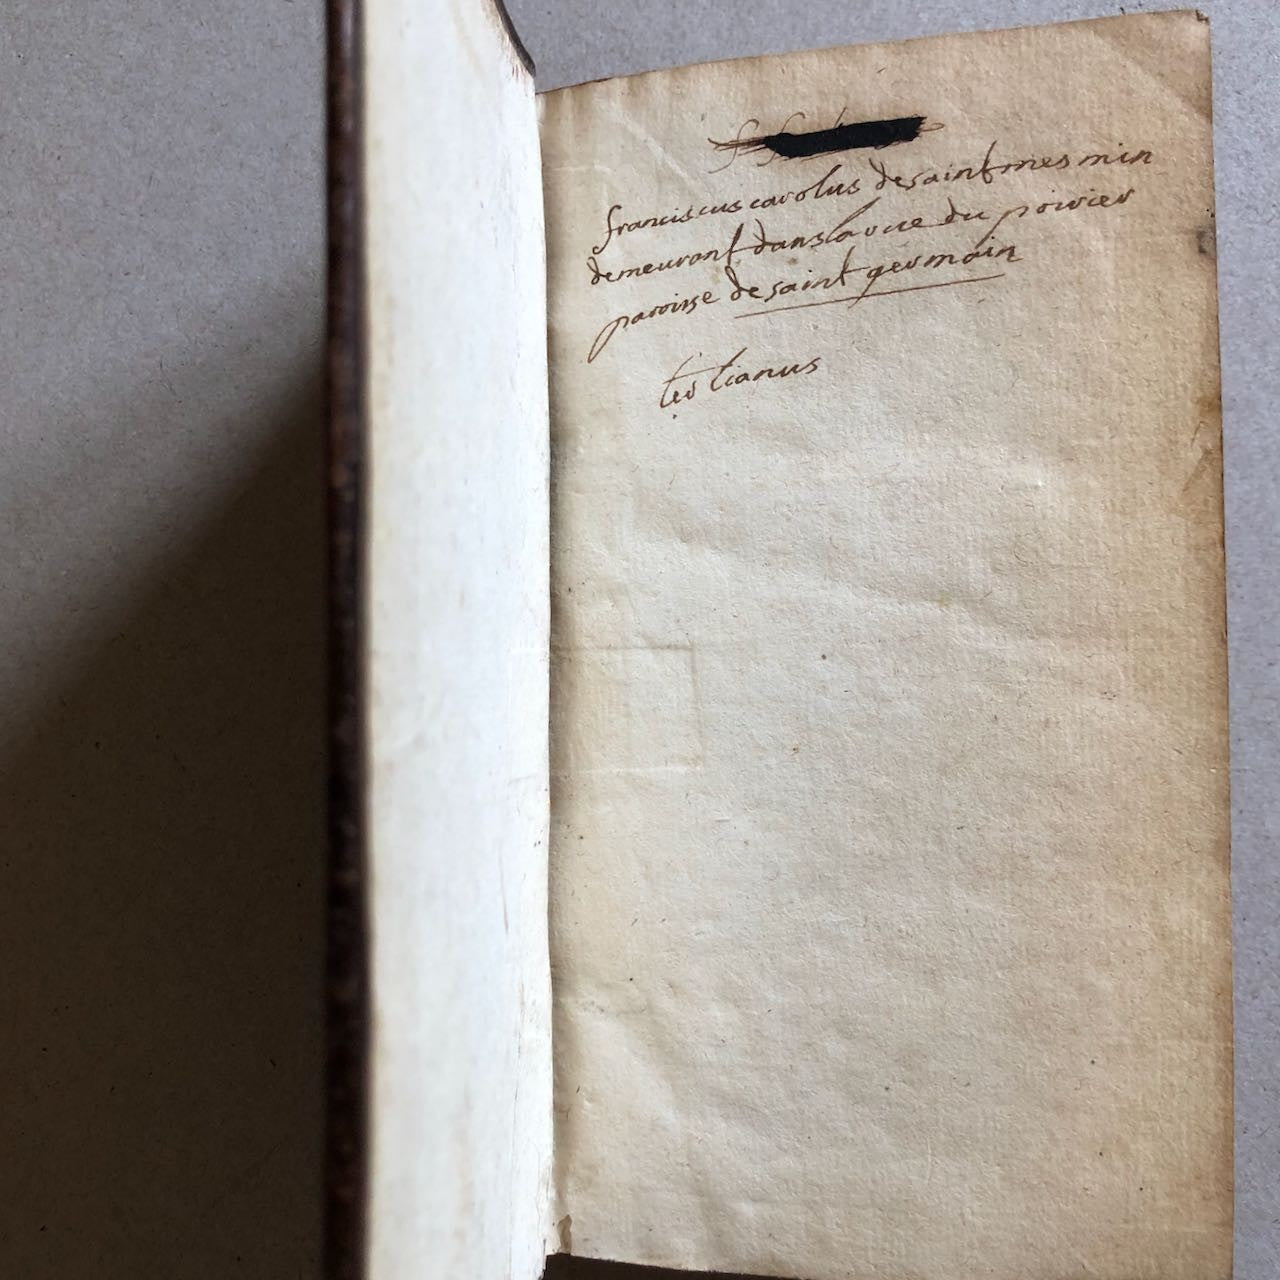 franciscus carolus de saint mesmin
demeurant dans la rue du poirier
paroisse de saint germain
tertianus